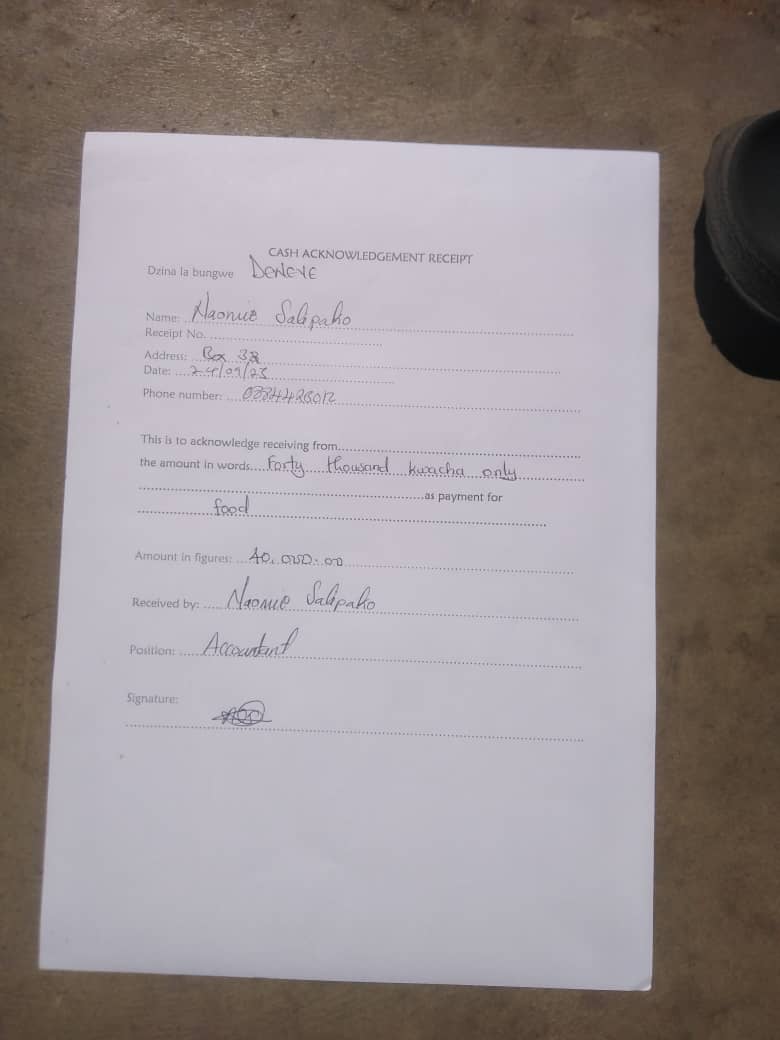 CASH ACKNOWLEDGEMENT RECEIPT
Dzina la bungwe DENEYE
Name: Naomie Salipako
Receipt No.
Address: Box 38
Date: 24/09/23
Phone number:
This is to acknowledge receiving from
the amount in words Forty thousand kwacha only
as payment for
food
Amount in figures: 40,000.00
Received by: Naomie Salipako
Position: Accountant
Signature: